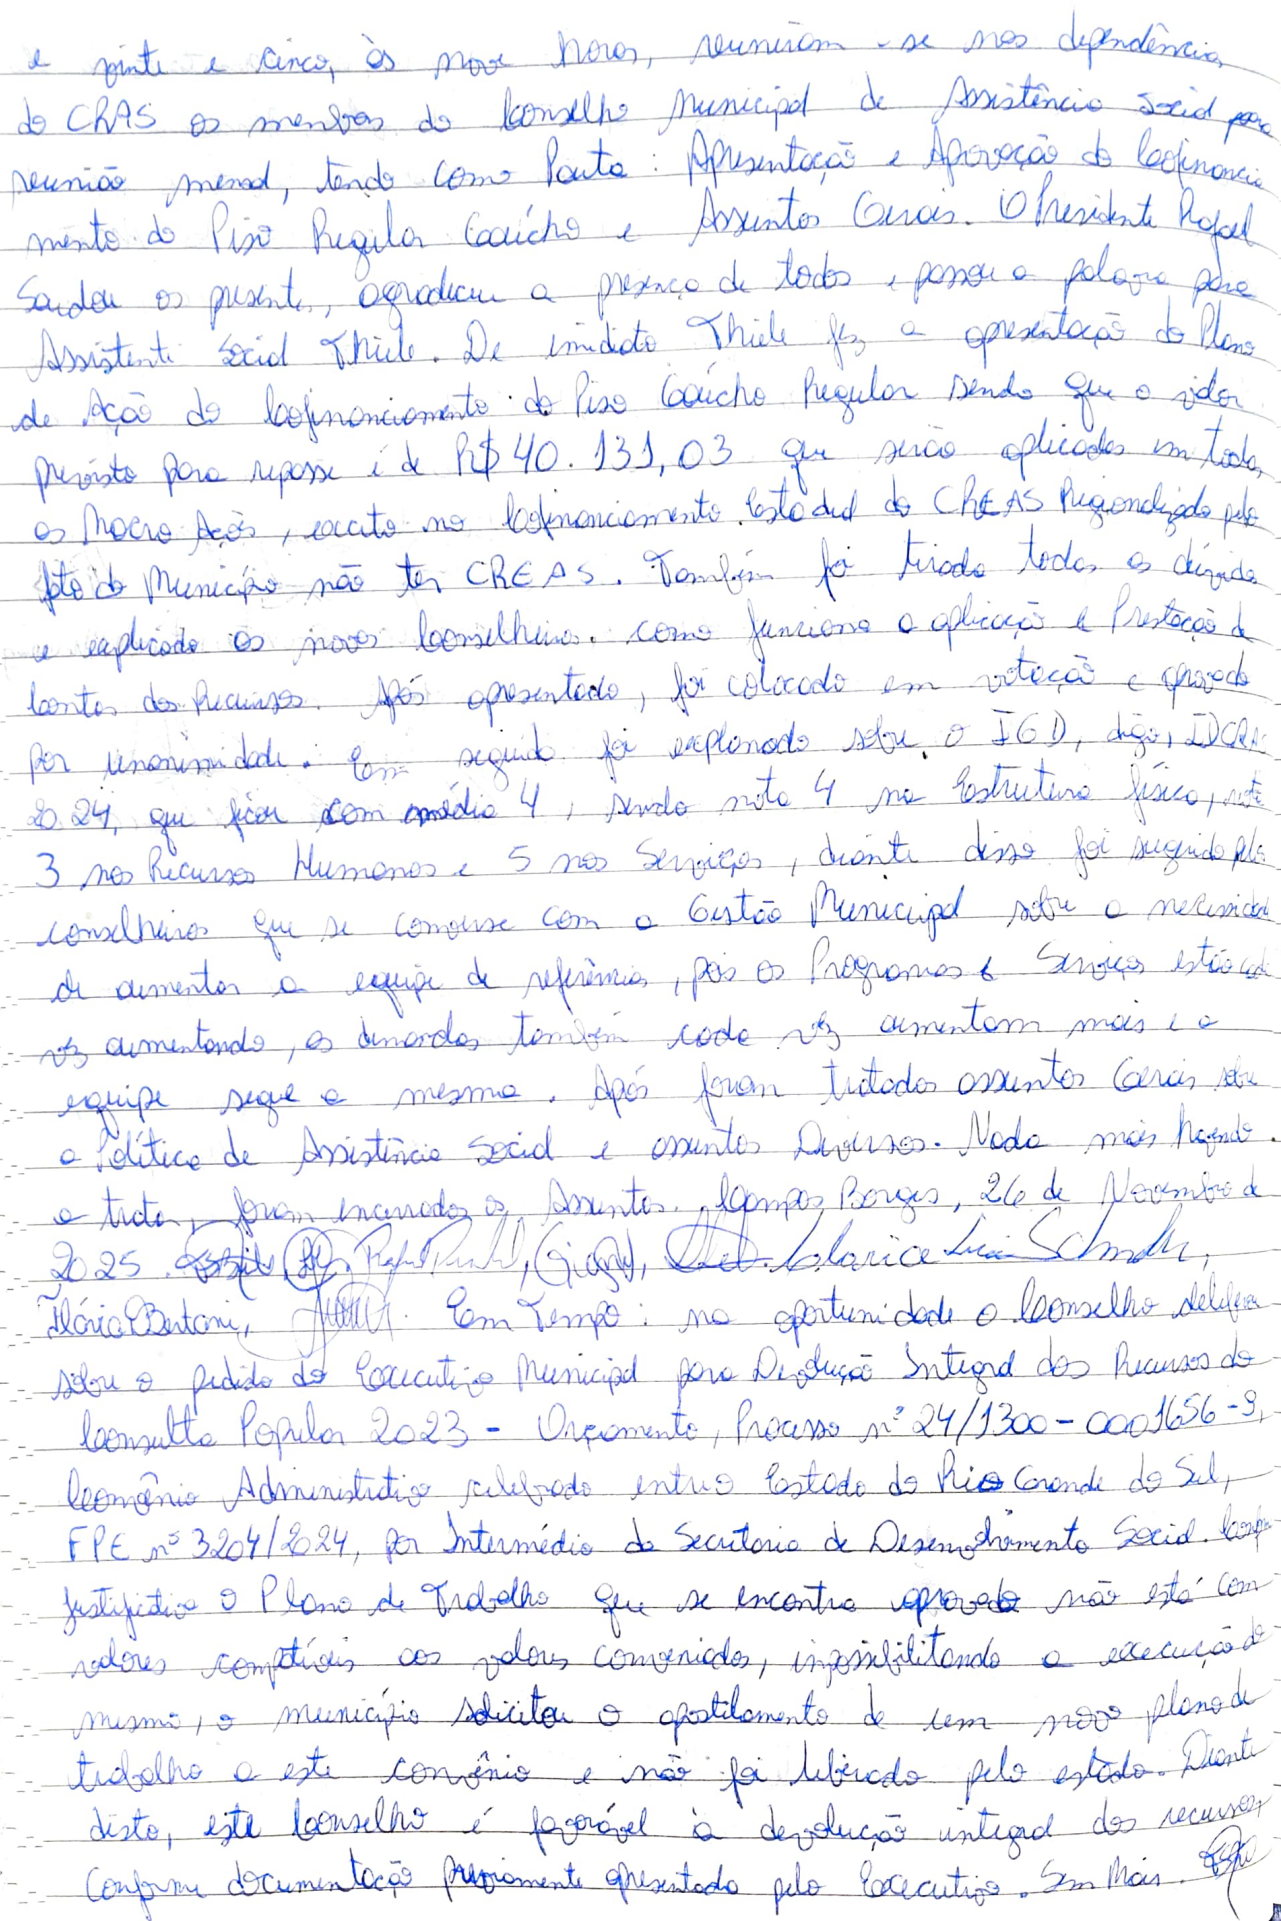 e vinte e cinco, às nove horas, reuniram-se nas dependências
do CRAS os membros do Conselho Municipal de Assistência Social para
reunião mensal, tendo como Pauta: Apresentação e Aprovação do Cofinancia
mento do Piso Regular Gaúcho e Assuntos Gerais. O Presidente Rafael
Saudou os presentes, agradeceu a presença de todos e passou a palavra para
Assistente Social Thiele. De imediato Thiele fez a apresentação do Plano
de Ação do Cofinanciamento do Piso Gaúcho Regular sendo que o valor
previsto para repasse é de R$ 40.131,03 que serão aplicados em todas
as Macro Ações, exceto no Cofinanciamento Estadual do CREAS Regionalizado pelo
fato do Município não ter CREAS. Também foi tirado todas as dúvidas
e explicado os novos Conselheiros. como funciona a aplicação e Prestação de
Contas dos Recursos. Após apresentado, foi colocado em votação e aprovado
por unanimidade. Em seguida foi explanado sobre o IGD, digo, IDCRAS
2024, que ficou com média 4, sendo nota 4 na Estrutura física, nota
3 nos Recursos Humanos e 5 nos Serviços, diante disso foi sugerido pelos
conselheiros que se converse com a Gestão Municipal sobre a necessidade
de aumentar a equipe de referência, pois os Programas e Serviços estão cada
vez aumentando, as demandas também cada vez aumentam mais e a
equipe segue a mesma. Após foram tratados assuntos Gerais sobre
a Política de Assistência Social e assuntos Diversos. Nada mais havendo
a tratar, foram encerrados os Assuntos. Campos Borges, 26 de Novembro de
2025. Clarice
Bertani, Em Tempo: na oportunidade o Conselho delibera
sobre o pedido do Executivo Municipal para Devolução Integral dos Recursos da
Consulta Popular 2023 - Orçamento, Processo nº 24/1300-0001656-9,
Convênio Administrativo celebrado entre o Estado do Rio Grande do Sul,
FPE nº 3204/2024, por Intermédio da Secretaria de Desenvolvimento Social.
justificativa o Plano de Trabalho que se encontra aprovado não está com
valores compatíveis aos valores conveniados, impossibilitando a execução do
mesmo, o município solicitou o apostilamento de um novo plano de
trabalho a este convênio e não foi liberado pelo estado. Diante
disto, este Conselho é favorável à devolução integral dos recursos,
conforme documentação previamente apresentada pelo Executivo. Sem Mais.